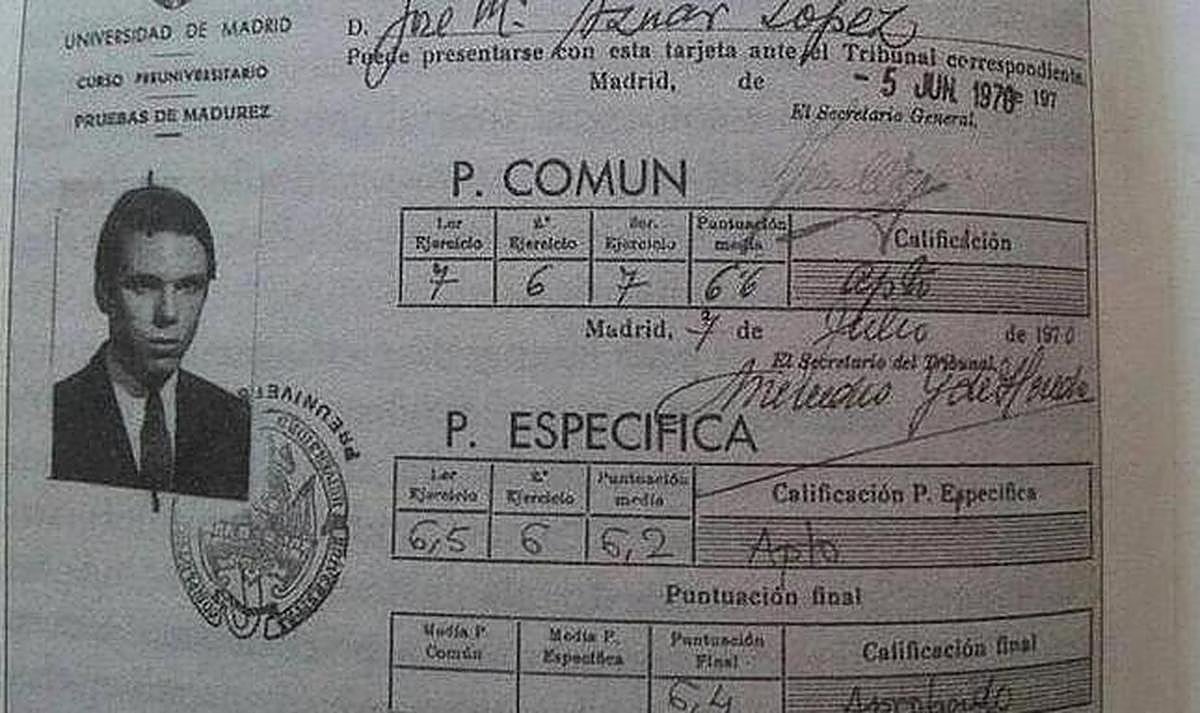 UNIVERSIDAD DE MADRID
CURSO PREUNIVERSITARIO
PRUEBAS DE MADUREZ
D. Jose Mª Aznar Lopez
Puede presentarse con esta tarjeta ante el Tribunal correspondiente.
Madrid, de - 5 JUN. 1970 de 197
El Secretario General,
P. COMUN
1.er Ejercicio 2.º Ejercicio 3er. Ejercicio Puntuación media Calificación
7 6 7 6 6 apto
Madrid, 7 de Julio de 1970
El Secretario del Tribunal,
P. ESPECIFICA
1.er Ejercicio 2.º Ejercicio Puntuación media Calificación P. Específica
6,5 6 6,2 Apto
PREUNIVE
Puntuación final
Media P. Común Media P. Específica Puntuación Final Calificación final
6,4 Aprobado